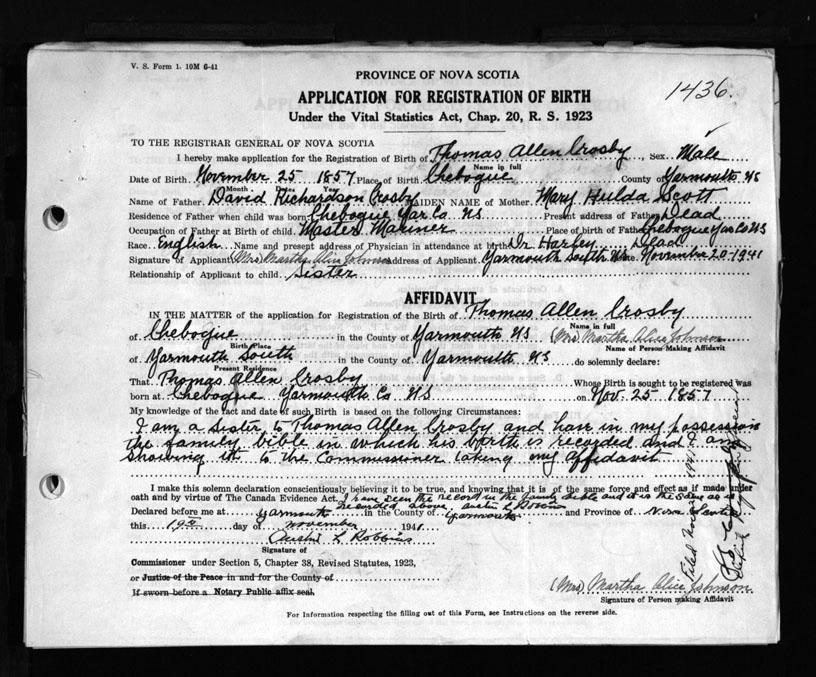 V. S. Form 1. 10M 6-41
PROVINCE OF NOVA SCOTIA
1436.
APPLICATION FOR REGISTRATION OF BIRTH
Under the Vital Statistics Act, Chap. 20, R. S. 1923
TO THE REGISTRAR GENERAL OF NOVA SCOTIA
I hereby make application for the Registration of Birth of Thomas Allen Crosby, Sex Male
Name in full
Date of Birth November 25 1857 Place of Birth Chebogue County of Yarmouth NS
Month Dates Year
Name of Father David Richardson Crosby MAIDEN NAME of Mother Mary Hulda Scott
Residence of Father when child was born Chebogue Yar Co NS Present address of Father Dead
Occupation of Father at Birth of child Master Mariner Place of birth of Father Chebogue Yar Co NS
Race English Name and present address of Physician in attendance at birth Dr Harley Dead
Signature of Applicant (Mrs) Martha Alice Johnson Address of Applicant Yarmouth South November 20-1941
Relationship of Applicant to child Sister
AFFIDAVIT
IN THE MATTER of the application for Registration of the Birth of Thomas Allen Crosby
Name in full
of Chebogue in the County of Yarmouth NS (Mrs) Martha Alice Johnson
Birth Place Name of Person Making Affidavit
of Yarmouth South in the County of Yarmouth NS do solemnly declare:
Present Residence
That Thomas Allen Crosby Whose Birth is sought to be registered was
born at Chebogue Yarmouth Co NS on Nov. 25 1857
My knowledge of the fact and date of such Birth is based on the following Circumstances:
I am a Sister to Thomas Allen Crosby and have in my possession
the family bible in which his birth is recorded and I am
showing it to the Commissioner taking my affidavit
I make this solemn declaration conscientiously believing it to be true, and knowing that it is of the same force and effect as if made under
oath and by virtue of The Canada Evidence Act. I have seen the record in the family bible and it is the same as is
recorded above, Austin L Robbins
Declared before me at Yarmouth in the County of Yarmouth and Province of Nova Scotia
this 19th day of November 1941
Austin L Robbins
Signature of
Commissioner under Section 5, Chapter 38, Revised Statutes, 1923,
or Justice of the Peace in and for the County of
If sworn before a Notary Public affix seal.
(Mrs) Martha Alice Johnson
Signature of Person making Affidavit
For Information respecting the filling out of this Form, see Instructions on the reverse side.
Filed Nov 1941